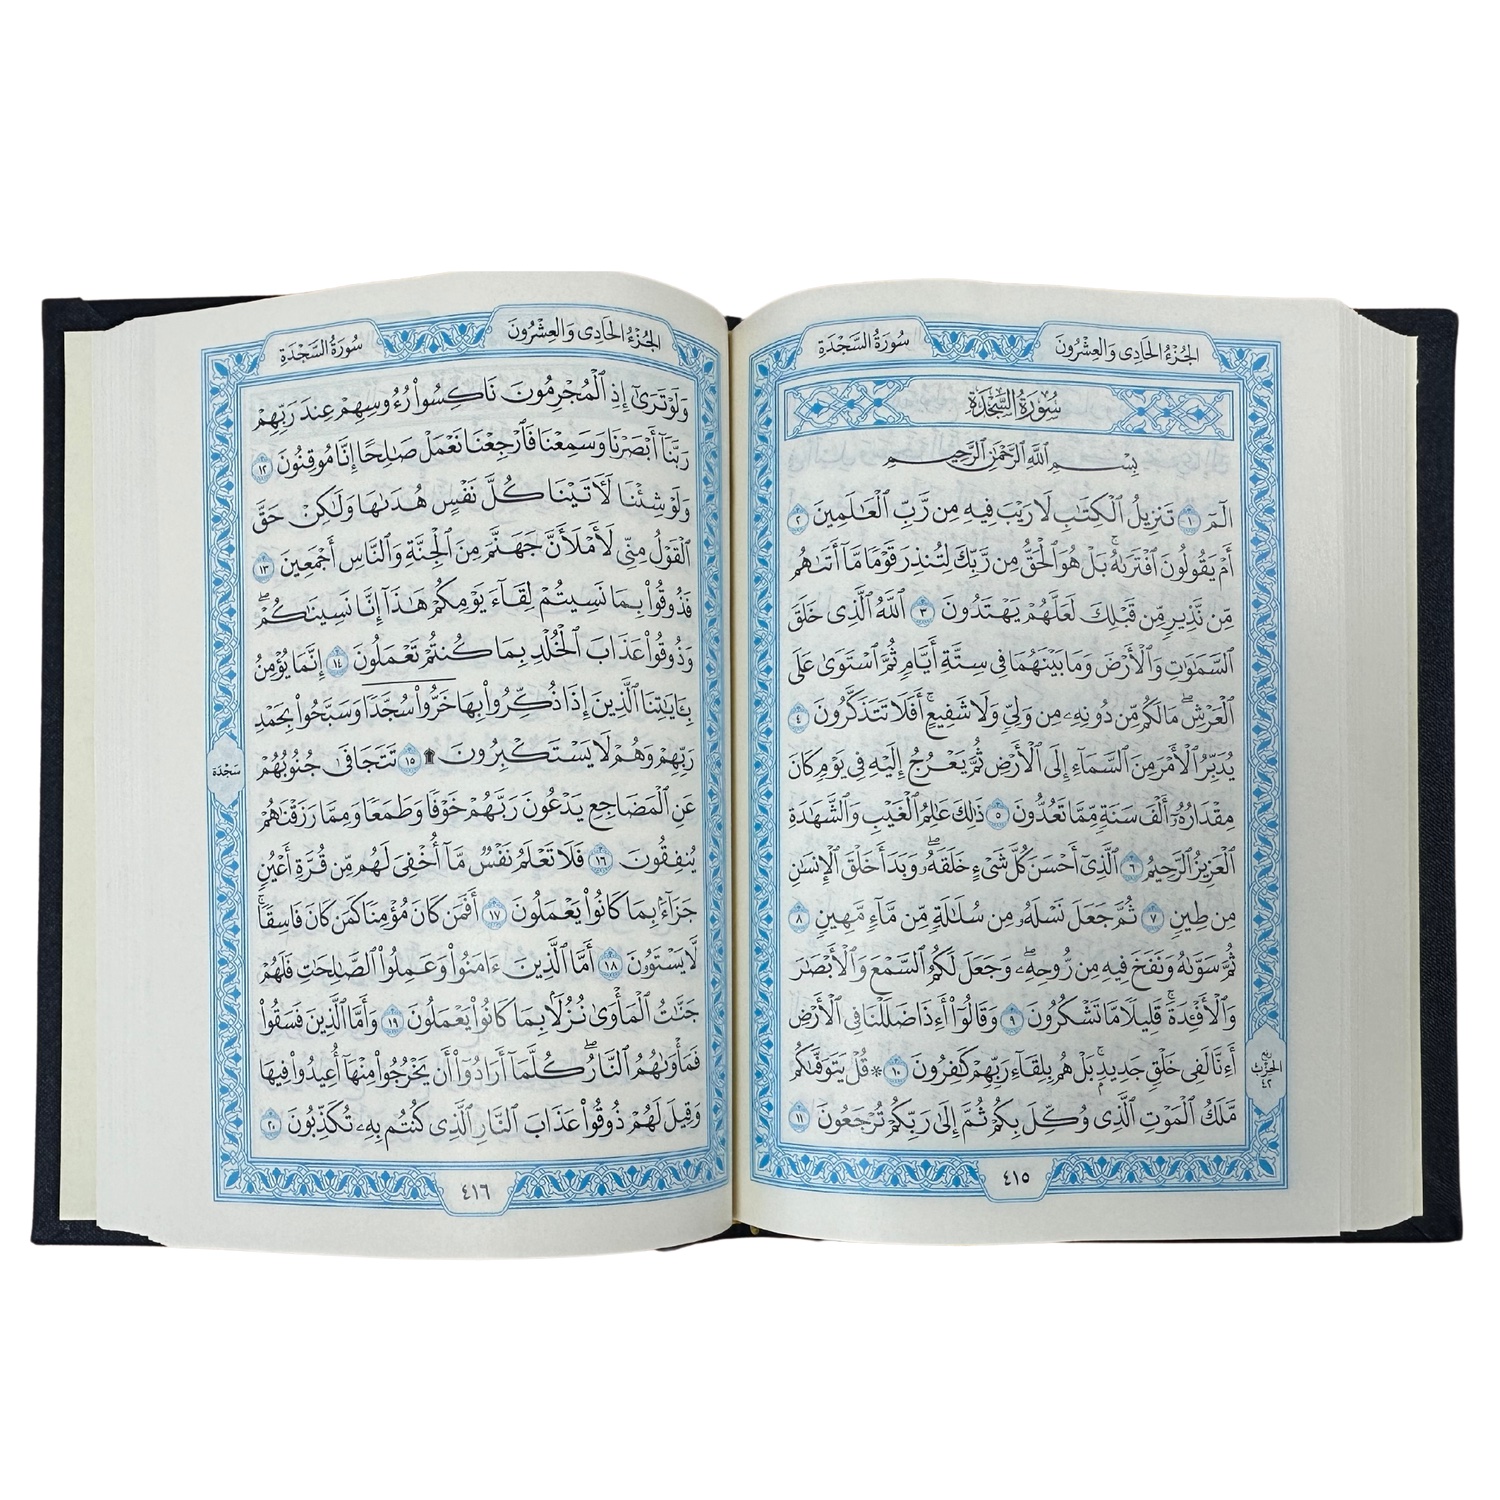 الجزء الحادي والعشرون
سورة السجدة
سُورَةُ السَّجْدَةِ
بِسْمِ ٱللَّهِ ٱلرَّحْمَٰنِ ٱلرَّحِيمِ
الٓمٓ ١ تَنزِيلُ ٱلْكِتَٰبِ لَا رَيْبَ فِيهِ مِن رَّبِّ ٱلْعَٰلَمِينَ ٢
أَمْ يَقُولُونَ ٱفْتَرَىٰهُۚ بَلْ هُوَ ٱلْحَقُّ مِن رَّبِّكَ لِتُنذِرَ قَوْمًا مَّآ أَتَىٰهُم
مِّن نَّذِيرٍ مِّن قَبْلِكَ لَعَلَّهُمْ يَهْتَدُونَ ٣ ٱللَّهُ ٱلَّذِى خَلَقَ
ٱلسَّمَٰوَٰتِ وَٱلْأَرْضَ وَمَا بَيْنَهُمَا فِى سِتَّةِ أَيَّامٍ ثُمَّ ٱسْتَوَىٰ عَلَى
ٱلْعَرْشِۖ مَا لَكُم مِّن دُونِهِۦ مِن وَلِىٍّ وَلَا شَفِيعٍۚ أَفَلَا تَتَذَكَّرُونَ ٤
يُدَبِّرُ ٱلْأَمْرَ مِنَ ٱلسَّمَآءِ إِلَى ٱلْأَرْضِ ثُمَّ يَعْرُجُ إِلَيْهِ فِى يَوْمٍ كَانَ
مِقْدَارُهُۥٓ أَلْفَ سَنَةٍ مِّمَّا تَعُدُّونَ ٥ ذَٰلِكَ عَٰلِمُ ٱلْغَيْبِ وَٱلشَّهَٰدَةِ
ٱلْعَزِيزُ ٱلرَّحِيمُ ٦ ٱلَّذِىٓ أَحْسَنَ كُلَّ شَىْءٍ خَلَقَهُۥۖ وَبَدَأَ خَلْقَ ٱلْإِنسَٰنِ
مِن طِينٍ ٧ ثُمَّ جَعَلَ نَسْلَهُۥ مِن سُلَٰلَةٍ مِّن مَّآءٍ مَّهِينٍ ٨
ثُمَّ سَوَّىٰهُ وَنَفَخَ فِيهِ مِن رُّوحِهِۦۖ وَجَعَلَ لَكُمُ ٱلسَّمْعَ وَٱلْأَبْصَٰرَ
وَٱلْأَفْـِٔدَةَۚ قَلِيلًا مَّا تَشْكُرُونَ ٩ وَقَالُوٓا۟ أَءِذَا ضَلَلْنَا فِى ٱلْأَرْضِ
أَءِنَّا لَفِى خَلْقٍ جَدِيدٍۭۚ بَلْ هُم بِلِقَآءِ رَبِّهِمْ كَٰفِرُونَ ١٠ * قُلْ يَتَوَفَّىٰكُم
مَّلَكُ ٱلْمَوْتِ ٱلَّذِى وُكِّلَ بِكُمْ ثُمَّ إِلَىٰ رَبِّكُمْ تُرْجَعُونَ ١١
ربع
الحزب
٤٢
٤١٥
الجزء الحادي والعشرون
سورة السجدة
وَلَوْ تَرَىٰٓ إِذِ ٱلْمُجْرِمُونَ نَاكِسُوا۟ رُءُوسِهِمْ عِندَ رَبِّهِمْ
رَبَّنَآ أَبْصَرْنَا وَسَمِعْنَا فَٱرْجِعْنَا نَعْمَلْ صَٰلِحًا إِنَّا مُوقِنُونَ ١٢
وَلَوْ شِئْنَا لَـَٔاتَيْنَا كُلَّ نَفْسٍ هُدَىٰهَا وَلَٰكِنْ حَقَّ
ٱلْقَوْلُ مِنِّى لَأَمْلَأَنَّ جَهَنَّمَ مِنَ ٱلْجِنَّةِ وَٱلنَّاسِ أَجْمَعِينَ ١٣
فَذُوقُوا۟ بِمَا نَسِيتُمْ لِقَآءَ يَوْمِكُمْ هَٰذَآ إِنَّا نَسِينَٰكُمْۖ
وَذُوقُوا۟ عَذَابَ ٱلْخُلْدِ بِمَا كُنتُمْ تَعْمَلُونَ ١٤ إِنَّمَا يُؤْمِنُ
بِـَٔايَٰتِنَا ٱلَّذِينَ إِذَا ذُكِّرُوا۟ بِهَا خَرُّوا۟ سُجَّدًا وَسَبَّحُوا۟ بِحَمْدِ
رَبِّهِمْ وَهُمْ لَا يَسْتَكْبِرُونَ ۩ ١٥ تَتَجَافَىٰ جُنُوبُهُمْ
عَنِ ٱلْمَضَاجِعِ يَدْعُونَ رَبَّهُمْ خَوْفًا وَطَمَعًا وَمِمَّا رَزَقْنَٰهُمْ
يُنفِقُونَ ١٦ فَلَا تَعْلَمُ نَفْسٌ مَّآ أُخْفِىَ لَهُم مِّن قُرَّةِ أَعْيُنٍ
جَزَآءًۢ بِمَا كَانُوا۟ يَعْمَلُونَ ١٧ أَفَمَن كَانَ مُؤْمِنًا كَمَن كَانَ فَاسِقًاۚ
لَّا يَسْتَوُۥنَ ١٨ أَمَّا ٱلَّذِينَ ءَامَنُوا۟ وَعَمِلُوا۟ ٱلصَّٰلِحَٰتِ فَلَهُمْ
جَنَّٰتُ ٱلْمَأْوَىٰ نُزُلًۢا بِمَا كَانُوا۟ يَعْمَلُونَ ١٩ وَأَمَّا ٱلَّذِينَ فَسَقُوا۟
فَمَأْوَىٰهُمُ ٱلنَّارُۖ كُلَّمَآ أَرَادُوٓا۟ أَن يَخْرُجُوا۟ مِنْهَآ أُعِيدُوا۟ فِيهَا
وَقِيلَ لَهُمْ ذُوقُوا۟ عَذَابَ ٱلنَّارِ ٱلَّذِى كُنتُم بِهِۦ تُكَذِّبُونَ ٢٠
سَجْدَة
٤١٦